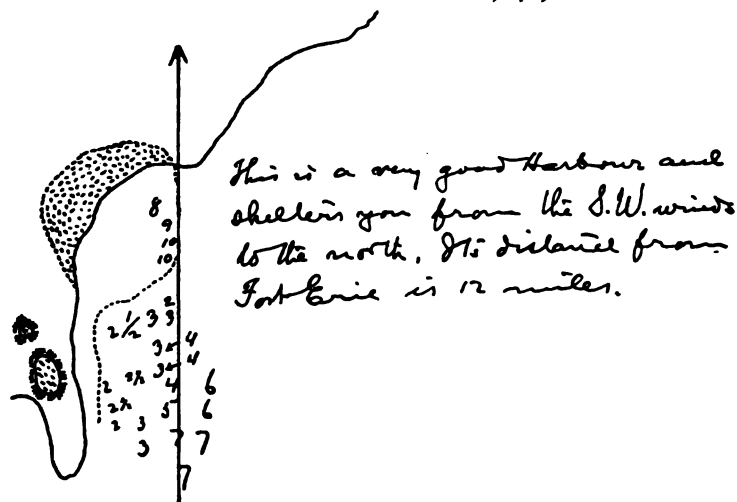 This is a very good Harbour and
shelters you from the S.W. winds
to the north. Its distance from
Fort Erie is 12 miles.
8
9
10
10
2
2 1/2 3 3
3 4
3 4
2 2½ 4 6
2½ 5 6
2 3
3 7 7
7